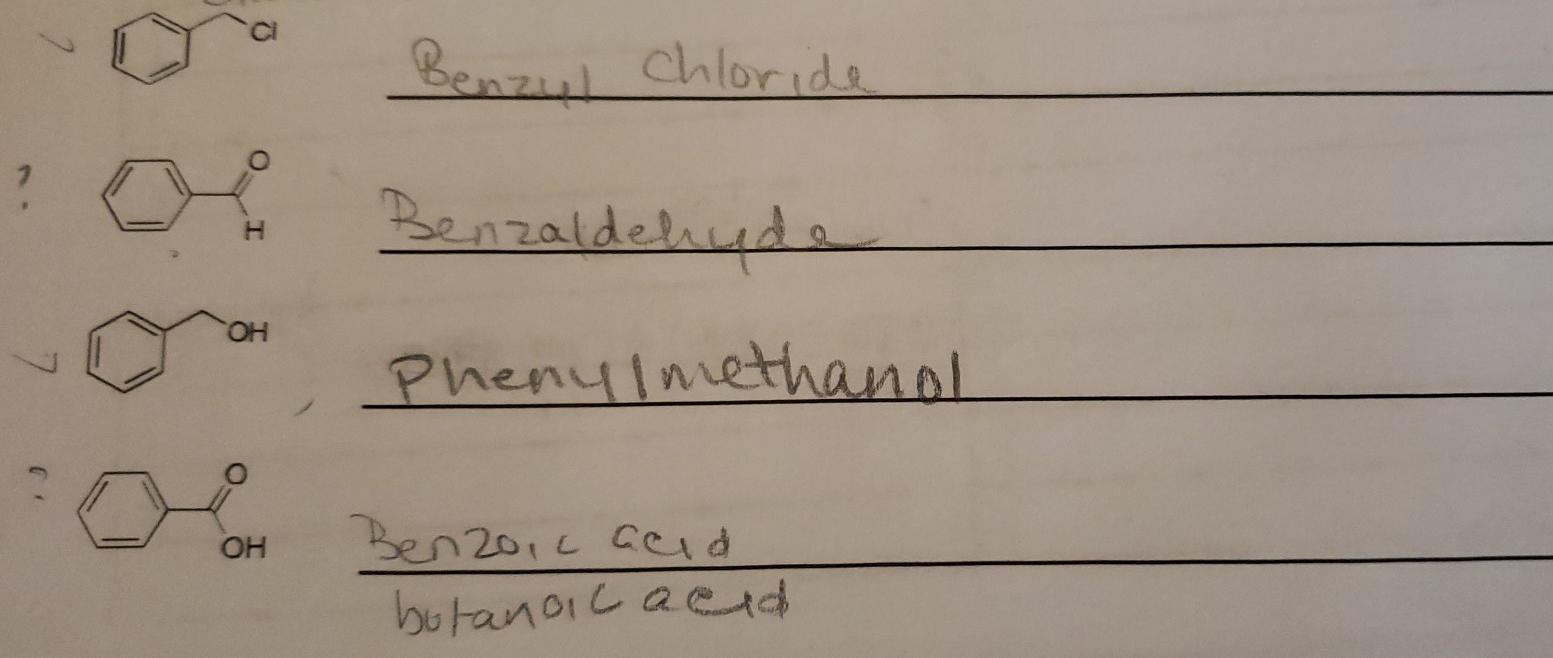 Cl
Benzyl Chloride
?
O
H
Benzaldehyde
OH
Phenylmethanol
?
O
OH
Benzoic acid
butanoic acid